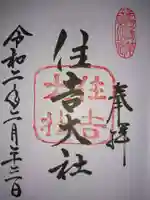 奉拝
住吉大社
住吉
大社
令和二年二月二十二日